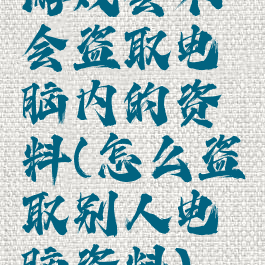 游戏会不
会盗取电
脑内的资
料(怎么盗
取别人电
脑资料)